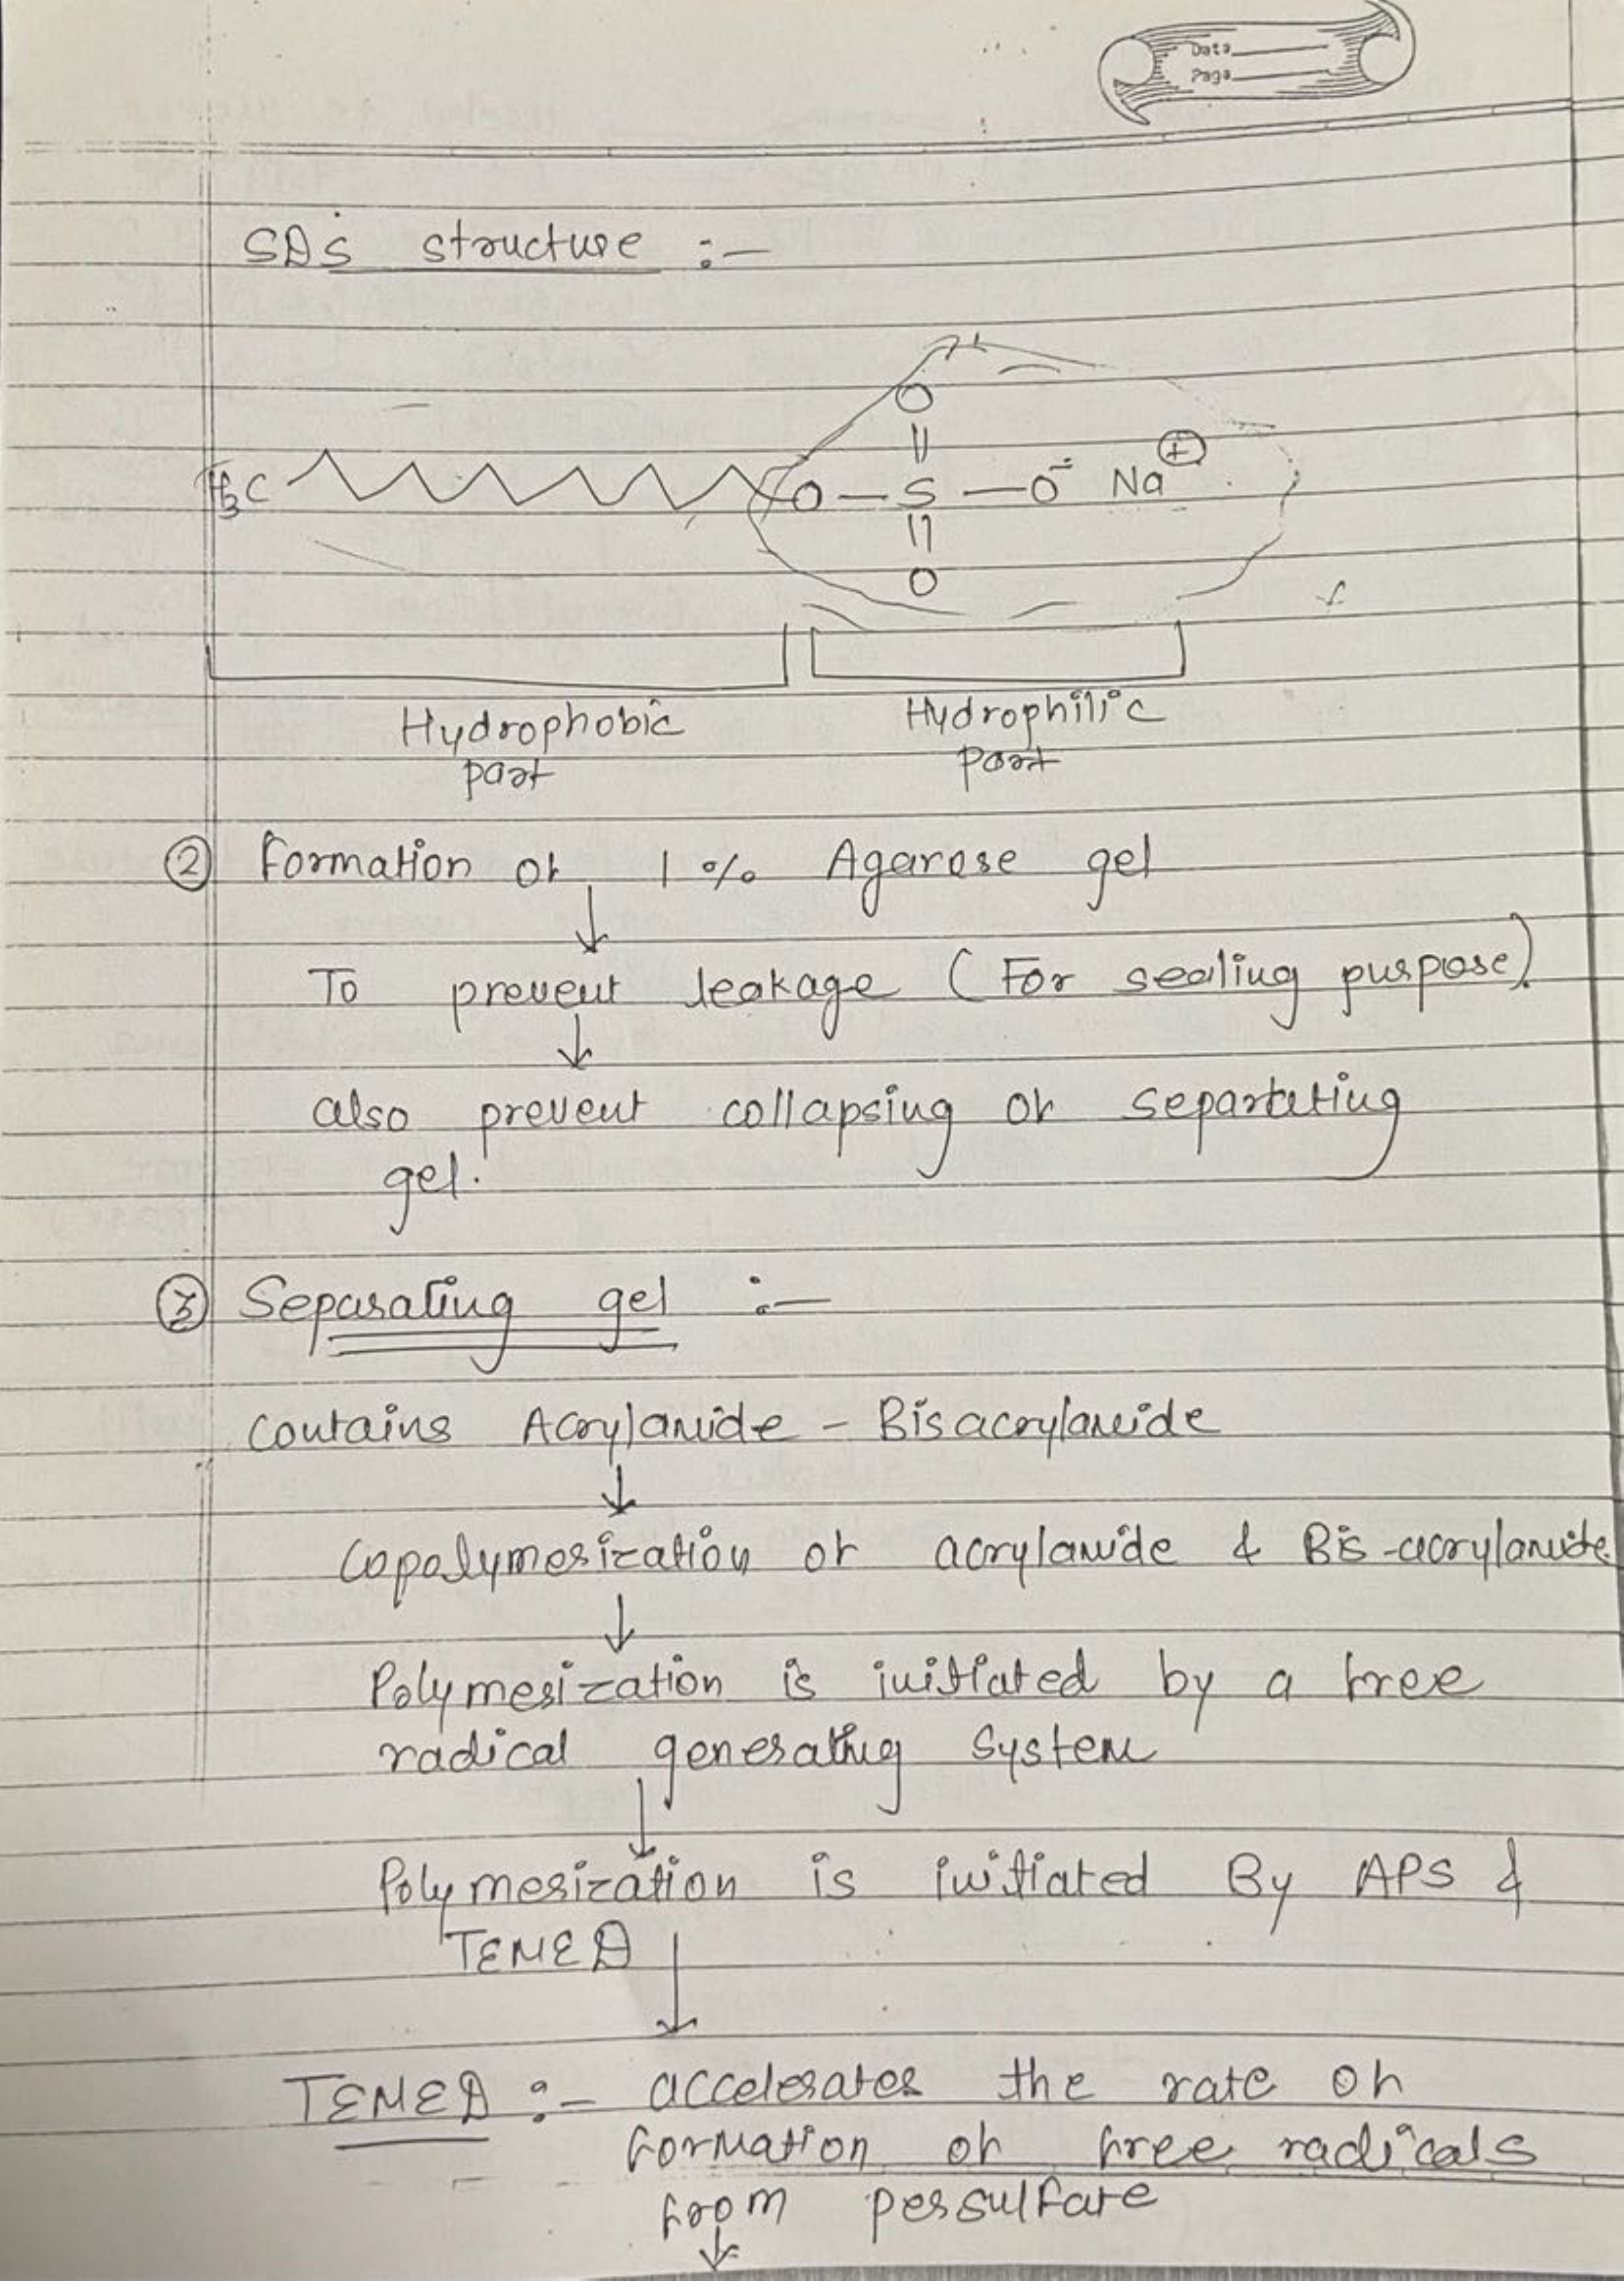 Data
Page
SDS structure :-
O
||
H3C O - S - O⁻ Na⊕
||
O
Hydrophobic part
Hydrophilic part
② Formation of 1 % Agarose gel
↓
To prevent leakage (For sealing purpose).
↓
also prevent collapsing of separtating
gel.
③ Separating gel :-
contains Acrylamide - Bisacrylamide
↓
Copolymerization of acrylamide & Bis-acrylamide
↓
Polymerization is initiated by a free
radical generating System
↓
Polymerization is initiated By APS &
TEMED
↓
TEMED :- accelerates the rate of
formation of free radicals
from persulfate
↓